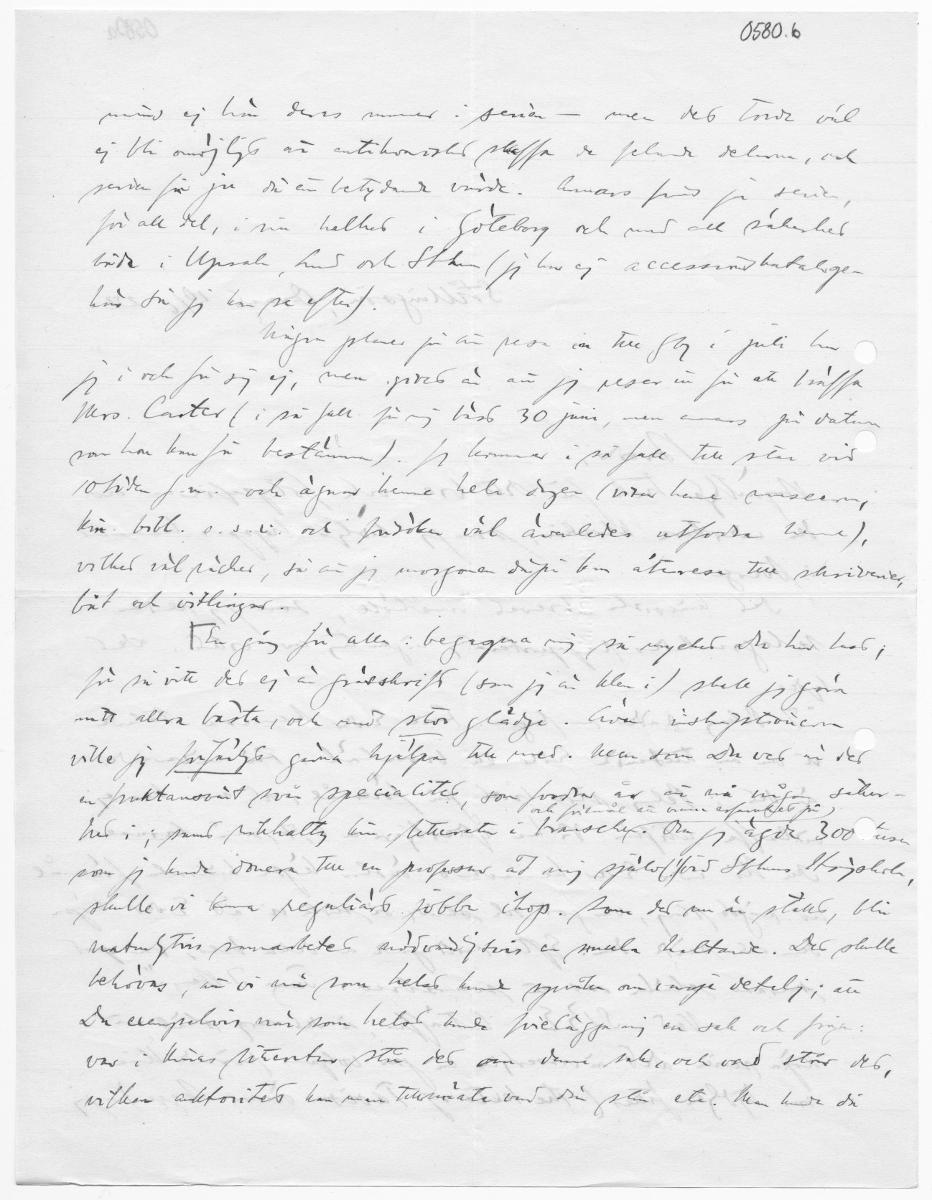 0580.b
ej han deras nummer i serien – men det torde väl
ej bli omöjligt att antikvariskt skaffa de felande delarna, och
serien får ju då en betydande värde. Annars finns ju serien,
för all del, i sin helhet i Göteborg och med all säkerhet
både i Upsala, Lund och Sthlm (jag har ej accessionskatalogen
här så jag kan se efter).
Någon planer på en resa in till Gbg i juli har
jag i och för sig ej, men givet är att jag reser in för att träffa
Mrs. Carter (i så fall för mig bäst 30 juni, men annars på datum
som hon kan få bestämma). Jag kommer i så fall till stan vid
10tiden f.m. och ägnar henne hela dagen (visar henne museerna,
kin. bibl. o.s.v. och försöker väl äwenledes utfodra henne),
vilket väl räcker, så att jag morgonen därpå kan återresa till skriverier,
båt och vitlingar.
En gång för alla: begagna mig så mycket Du har lust;
för så vitt det ej är grässkrift (som jag är klen i) skall jag göra
mitt allra bästa, och med stor glädje. Även inskriptionerna
ville jag förfärligt gärna hjälpa till med. Men som Du vet är det
en fruktansvärt svår specialitet, som fordrar år att nå någon säker-
och förmåga att vinna erfarenhet på,
het i, samt rikhaltig kin. litteratur i branschen. Om jag ägde 300 tusen
som jag kunde donera till en professur åt mig själv vid Sthlms Högskola,
skulle vi kunna reguliärt jobba ihop. Som det nu är ställt, blir
naturligtvis samarbetet nödvändigtvis en smula haltande. Det skulle
behövas, att vi när som helst kunde språka om varje detalj; att
Du exempelvis när som helst kunde förelägga mig en sak och fråga:
var i Kinas litteratur står det om denna sak, och vad står det,
vilken auktoritet kan man tillmäta vad där står etc. Man kunde då